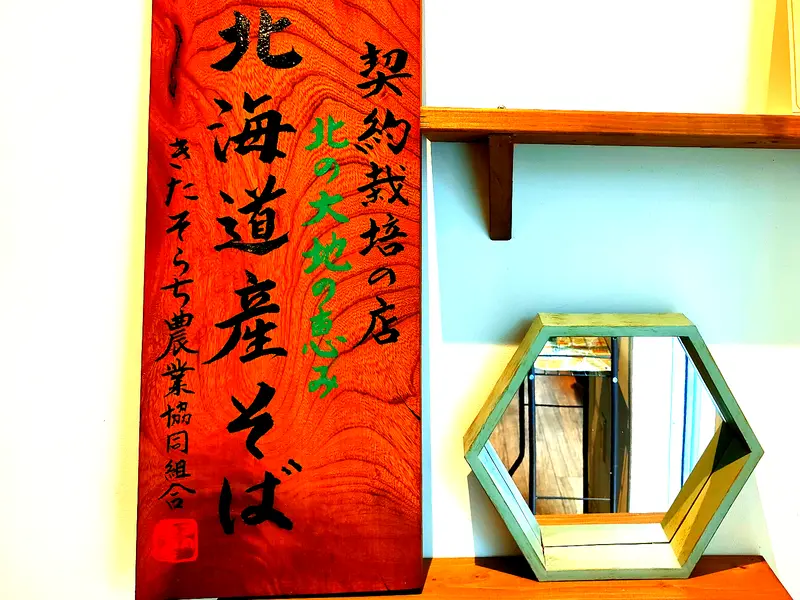 契約栽培の店
北の大地の恵み
北海道産そば
きたそらち農業協同組合